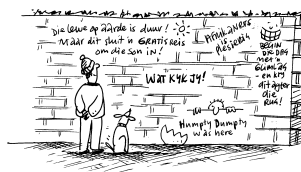 Die lewe op aarde is duur!
Maar dit sluit 'n GRATIS reis
om die son in!
AFRIKANERS
PLESIERIG
BEGIN
DIE DAG
MET 'n
GLIMLAG
- en kry
dit agter
die
RUG!
WAT KYK JY!
Humpty Dumpty
was here